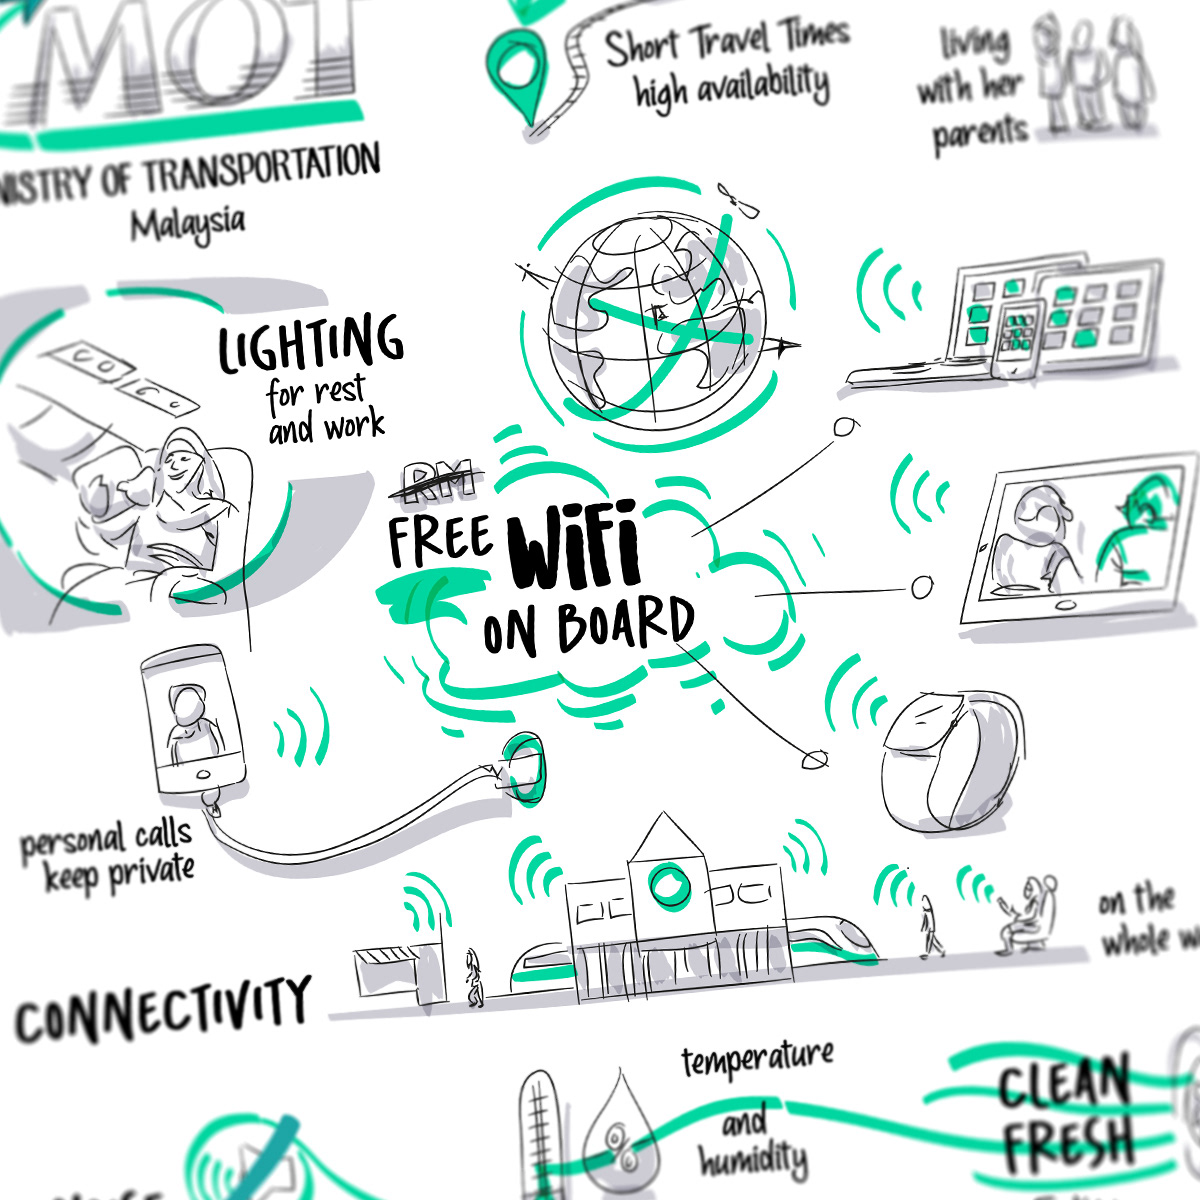 MOT
NISTRY OF TRANSPORTATION
Malaysia
Short Travel Times
high availability
living
with her
parents
LIGHTING
for rest
and work
RM
FREE WiFi
ON BOARD
personal calls
keep private
CONNECTIVITY
on the
whole w
temperature
and
humidity
%
CLEAN
FRESH